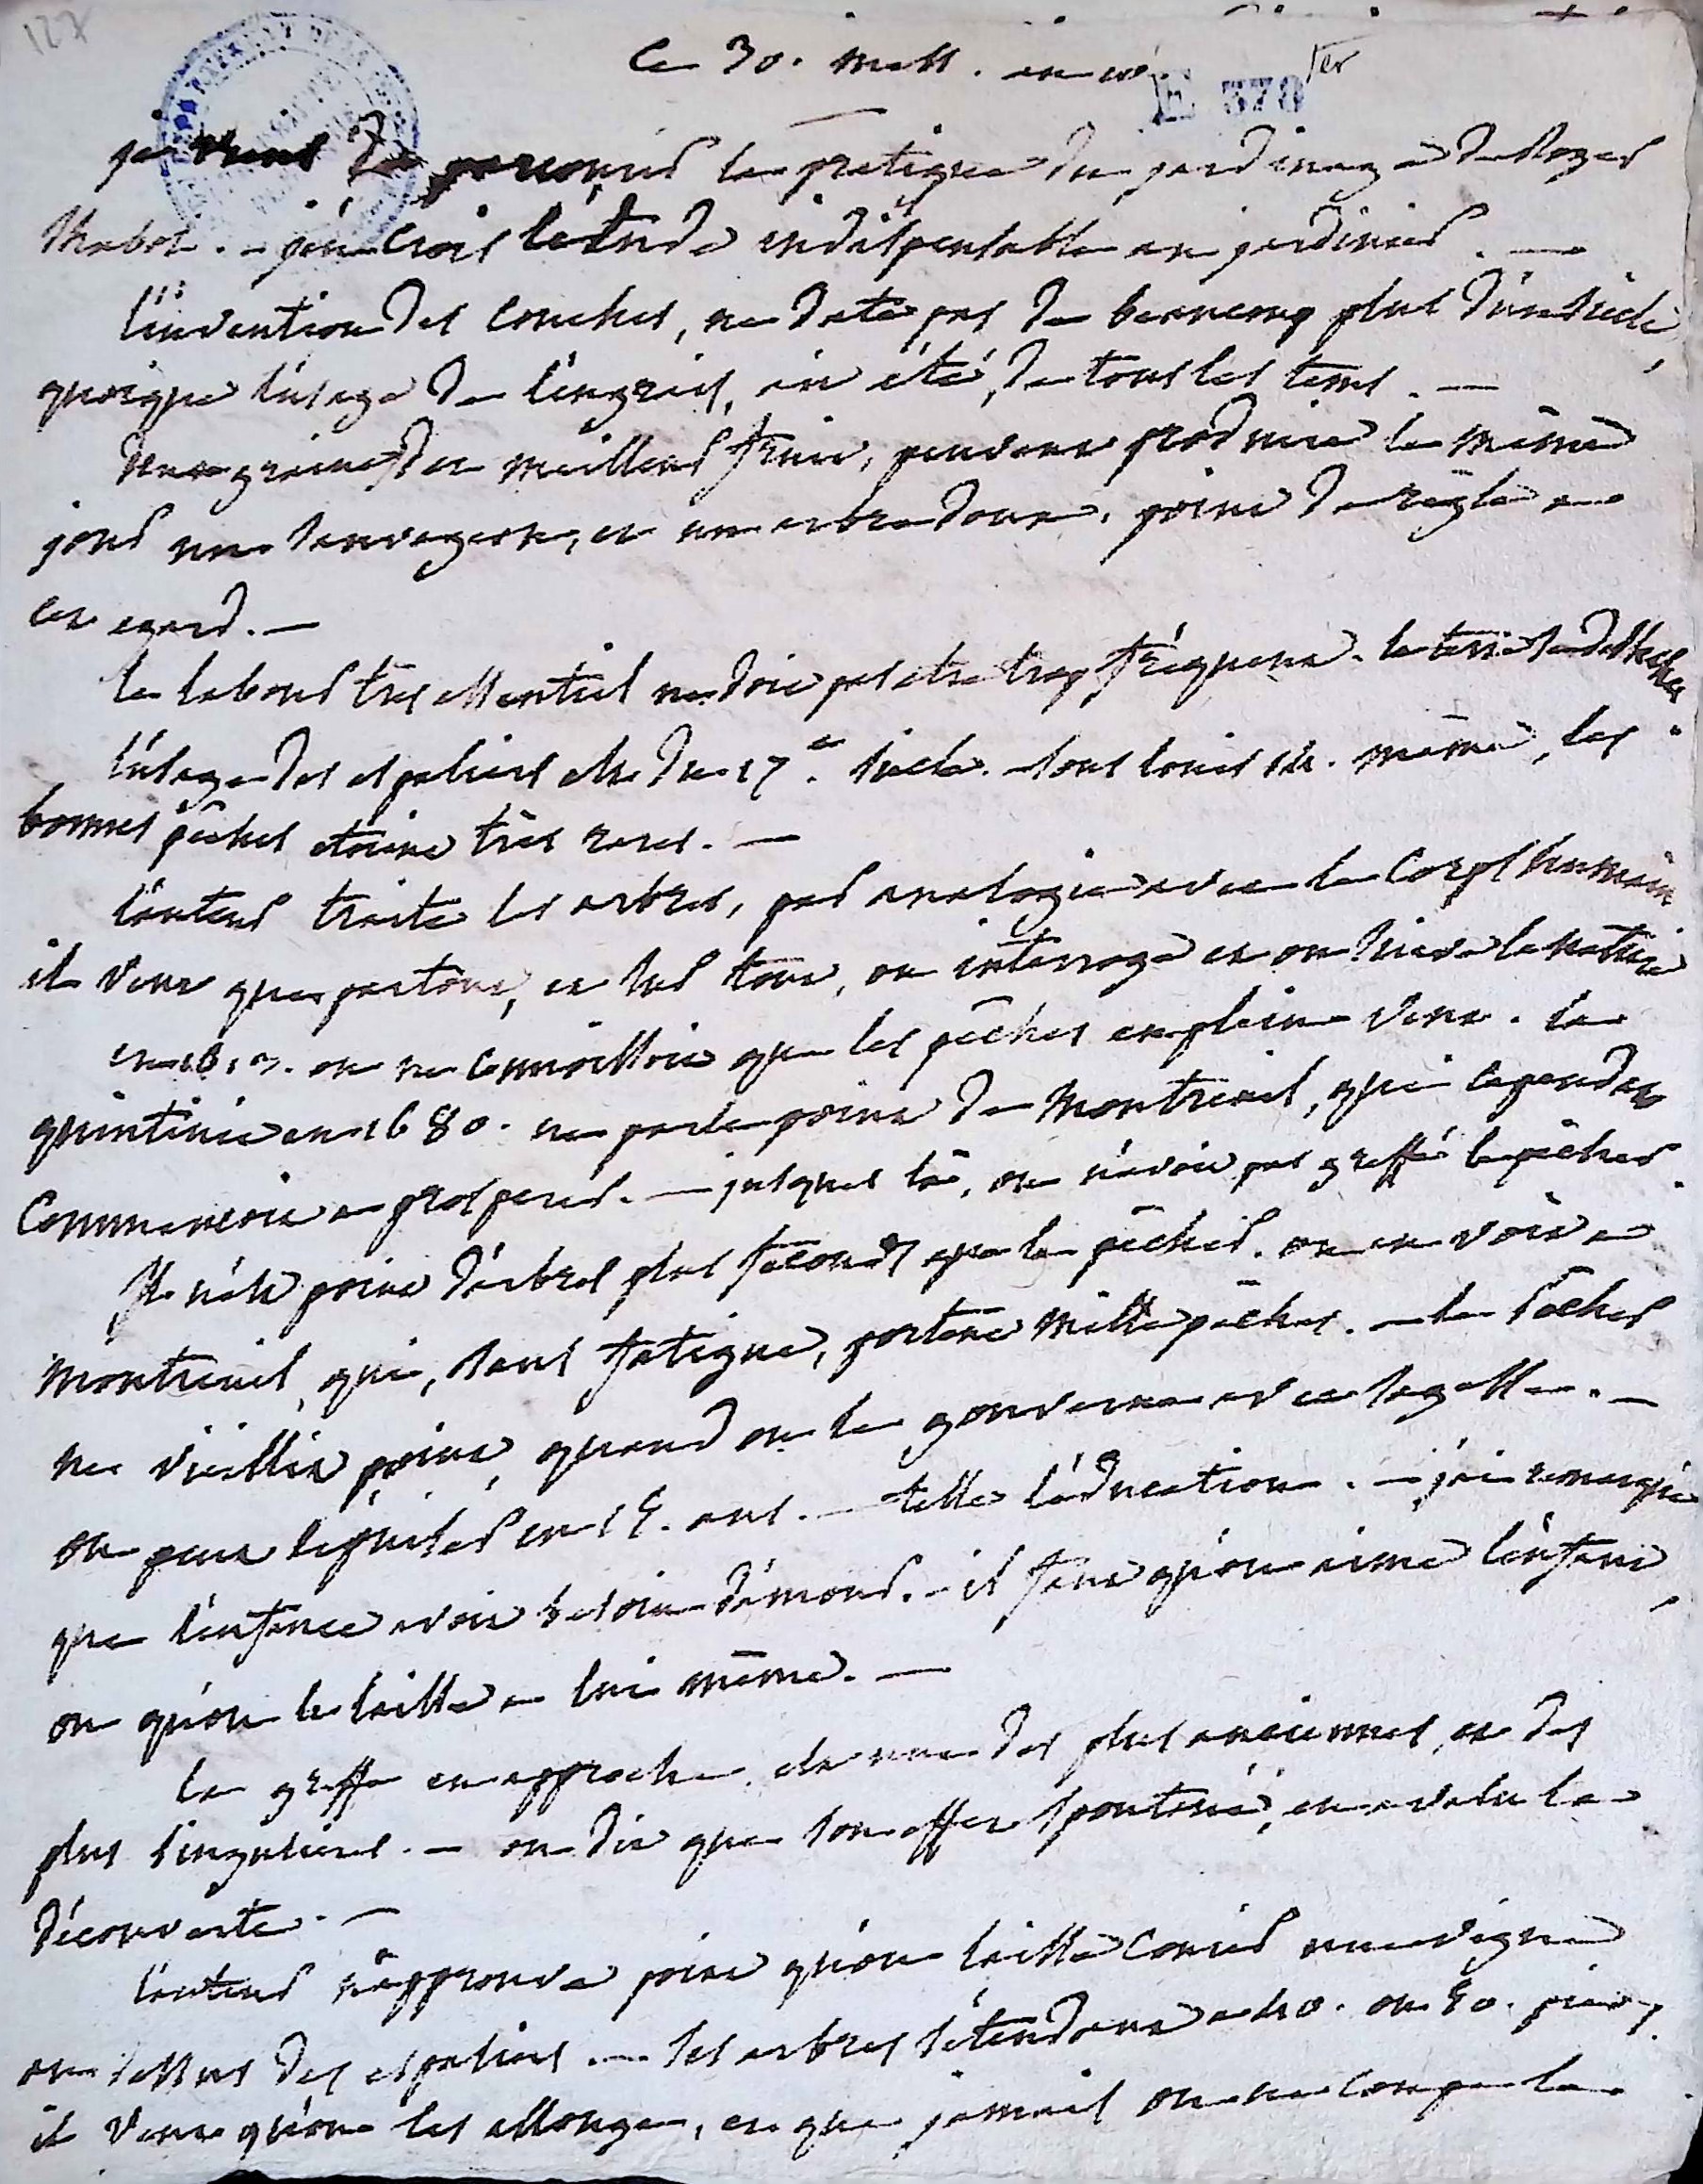 127
Ce 30. mess. an
E 378 ter
je viens de parcourir la pratique du jardinage de Roger
Schabol. - j'en crois l'étude indispensable au jardinier. -
l'invention des couches, ne date pas de beaucoup plus d'un siècle,
quoique l'usage de l'engrais, ait été de tous les tems. -
deux graines du meilleur fruit, peuvent produire le même
jour un sauvageon, et un arbre doux. point de règle a
cet egard. -
le labour tres essentiel ne doit pas etre trop fréquent. la terre se desseche.
l'usage des espaliers est du 17e. siecle. - sous louis 14. même, les
bonnes pêches etoient très rares. -
l'auteur traite les arbres, par analogie avec le corps humain
il veut que partout, et sur tout, on interroge et on suive la nature
en on ne connoissoit que les pêches en plein vent. la
quintinie en 1680. ne parle point de Montreuil, qui cependant
commencoit a prosperer. - jusques là, on n'avoit pas greffé le pêcher.
Il n'est point d'arbres plus féconds que le pêcher. on en voit a
Montreuil, qui, sans fatigue, portent mille pêches. - le pêcher
ne vieillit point, quand on le gouverne avec sagesse. -
on peut l'epuiser en 15. ans. - telle l'éducation. - j'ai remarqué
que l'enfance avoit besoin d'amour. - il faut qu'on aime l'enfant,
ou qu'on le laisse a lui même. -
la greffe en approche, est une des plus anciennes, et des
plus singulieres. - on dit que son effet spontané, en a valu la
découverte. -
l'auteur n'approuve point qu'on laisse courir une vigne
au dessus des espaliers. - ses arbres s'étendent a 40. ou 50. pieds.
il veut qu'on les allonge, et que jamais on ne coupe le